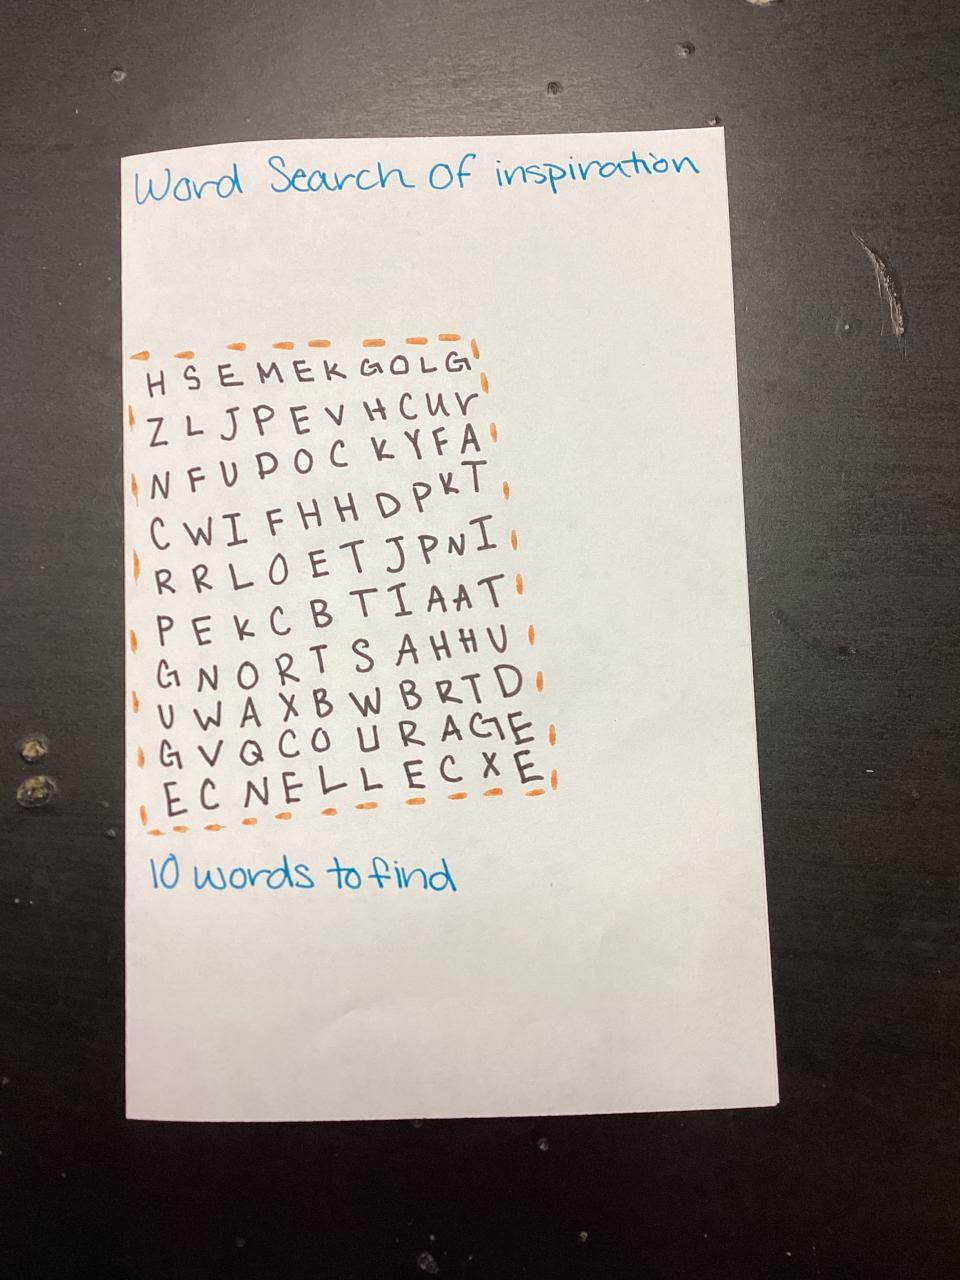 Word Search Of inspiration
H S E M E K G O L G
Z L J P E V H C U r
N F U D O C K Y F A
C W I F H H D P K T
R R L O E T J P N I
P E K C B T I A A T
G N O R T S A H H U
U W A X B W B R T D
G V Q C O U R A G E
E C N E L L E C X E
10 words to find